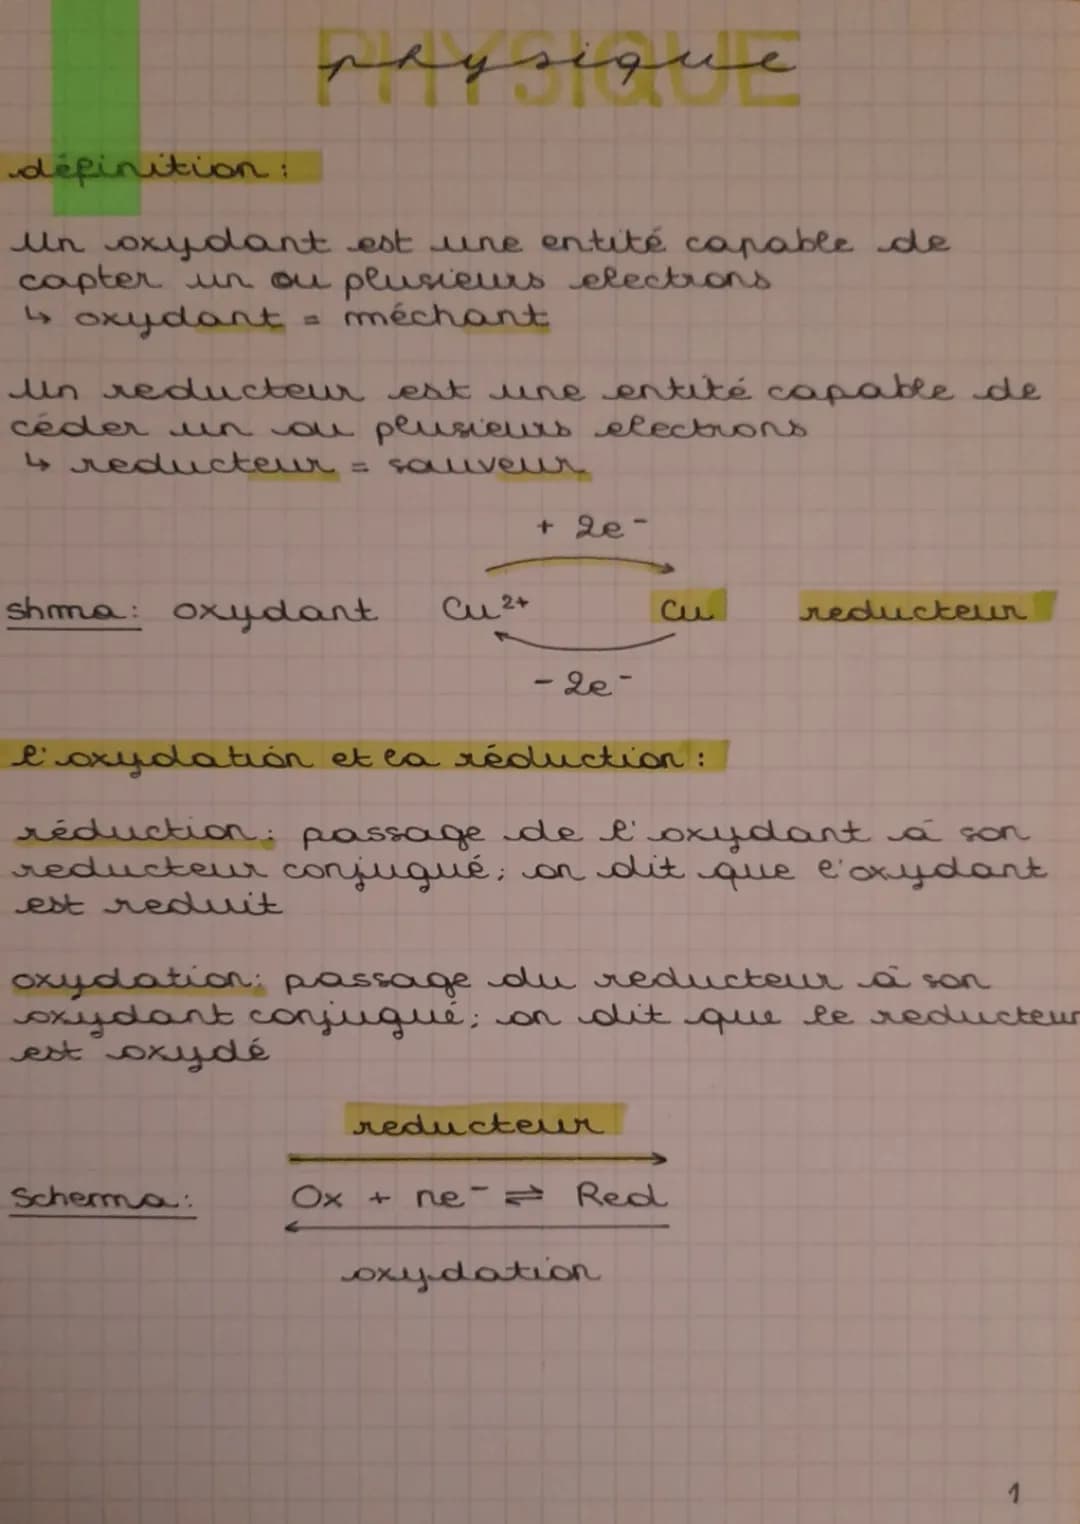 PHYSIQUE
physique
définition :
Un oxydant est une entité capable de
capter un ou plusieurs electrons
↳ oxydant = méchant
Un reducteur est une entité capable de
céder un ou plusieurs electrons
↳ reducteur = sauveur
+ 2e⁻
shma: oxydant Cu²⁺ Cu reducteur
- 2e⁻
l'oxydation et la réduction :
réduction: passage de l'oxydant à son
reducteur conjugué; on dit que l'oxydant
est reduit
oxydation: passage du reducteur à son
oxydant conjugué; on dit que le reducteur
est oxydé
reducteur
Schema: Ox + ne⁻ ⇌ Red
oxydation
1